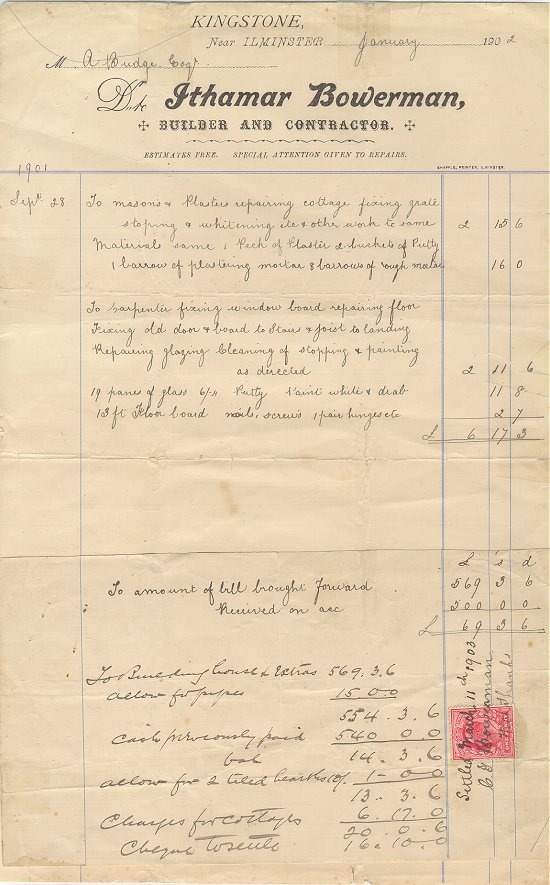 KINGSTONE,
Near ILMINSTER January 1902
Mr A Budge Esqr
Dr. to Ithamar Bowerman,
BUILDER AND CONTRACTOR.
ESTIMATES FREE. SPECIAL ATTENTION GIVEN TO REPAIRS.
SHAPPLE, PRINTER, ILMINSTER.
1901
Sept. 28 To masons & Plasters repairing cottage fixing grate
stoping & whitening etc & other work to same 2 15 6
Materials same 1 Peck of Plaster 2 buckets of Putty
1 barrow of plastering mortar 8 barrows of rough mortar 16 0
To Carpenter fixing window board repairing floor
Fixing old door & board to Stairs & Joist to landing
Repairing glazing Cleaning of stopping & painting
as directed 2 11 6
19 panes of glass 6/- Putty Paint white & drab 11 8
13 ft Floor board nails, screws 1 pair hinges etc 2 7
£ 6 17 3
£ s d
To amount of bill brought Forward 569 3 6
Received on acc 500 0 0
£ 69 3 6
To Building house & Extras 569. 3. 6
allow for pipes 15 0 0
554. 3. 6
Cash previously paid 540 0 0
bal 14. 3. 6
allow for 2 tiled hearths 10/. 1-0-0
13. 3. 6
Charges for cottages 6. 17. 0
20. 0. 6
Cheque to settle 16. 10. 0
Settled March 11th 1903
Bowerman
Thanks